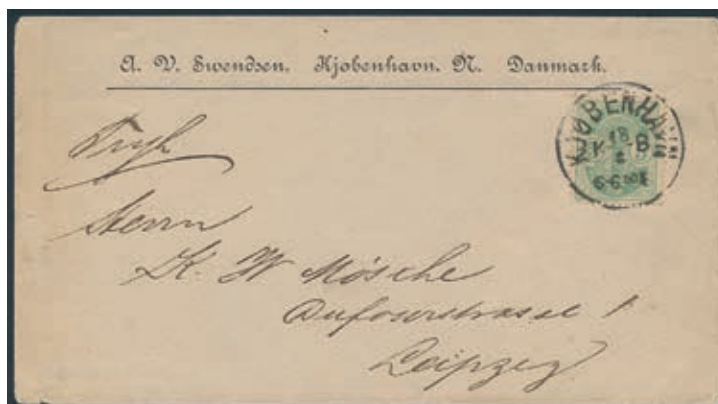 A. V. Swendsen. Kjøbenhavn. N. Danmark.
KJØBENHAVN
18
K -B
6-6
Tryk
Herrn
K. W Mösche
Dufourstrasse 1
Leipzig